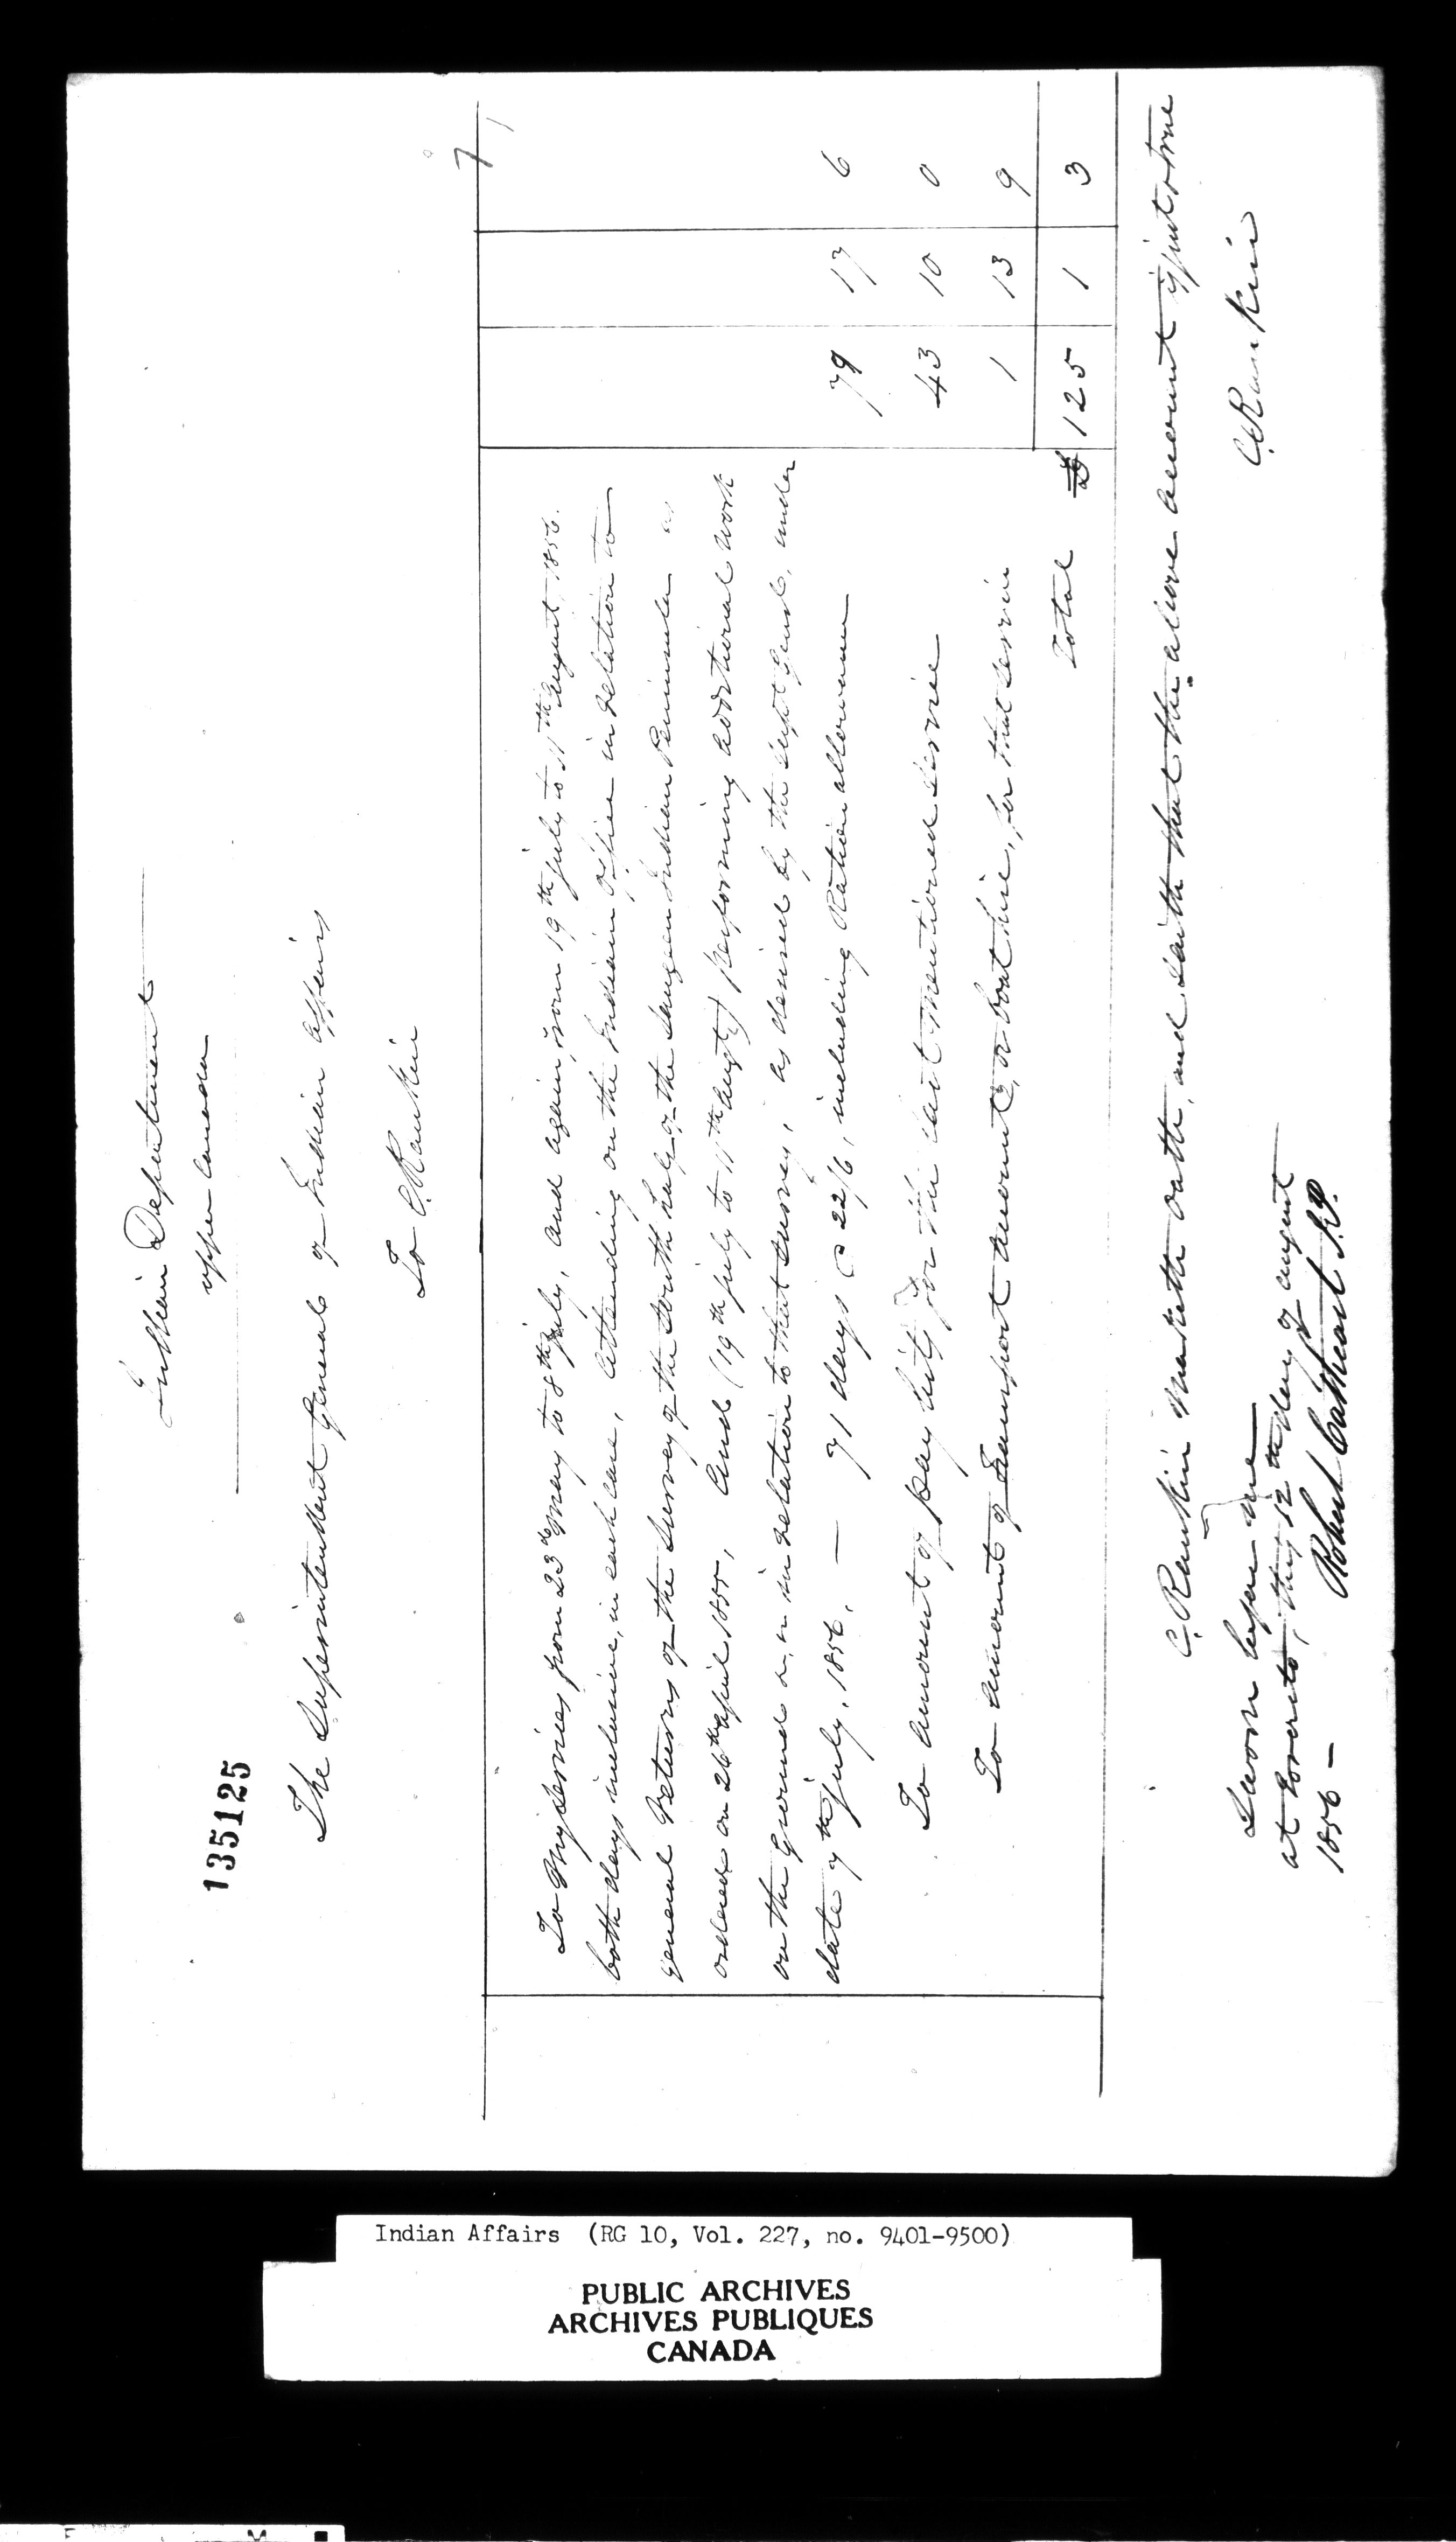 135125
Indian Department
Upper Canada
The Superintendent General of Indian Affairs
To C. Rankin
To my services from 23d May to 8th July, and again from 19th July to 11th August 1856.
both days inclusive, in each case, attending on the Indian Office in relation to
general Returns of the Survey of the South half of the Saugeen Indian Peninsula as
ordered on 26th April 1855, and (19th July to 11th Augt) performing additional work
on the ground or, in relation to that survey, as desired by the Supt Genl, under
date 7th July, 1856, — 71 days @ 22/6, including Ration allowance 79 17 6
To amount of pay list for the last mentioned service 43 10 0
To amount of Transport account, or boat hire, for that service 1 13 9
Total £ 125 1 3
C. Rankin maketh oath, and saith that the above account is just & true
C. Rankin
Sworn before me
at Toronto, this 12th day of August
1856 —
Robert Cathcart J.P.
Indian Affairs (RG 10, Vol. 227, no. 9401-9500)
PUBLIC ARCHIVES
ARCHIVES PUBLIQUES
CANADA